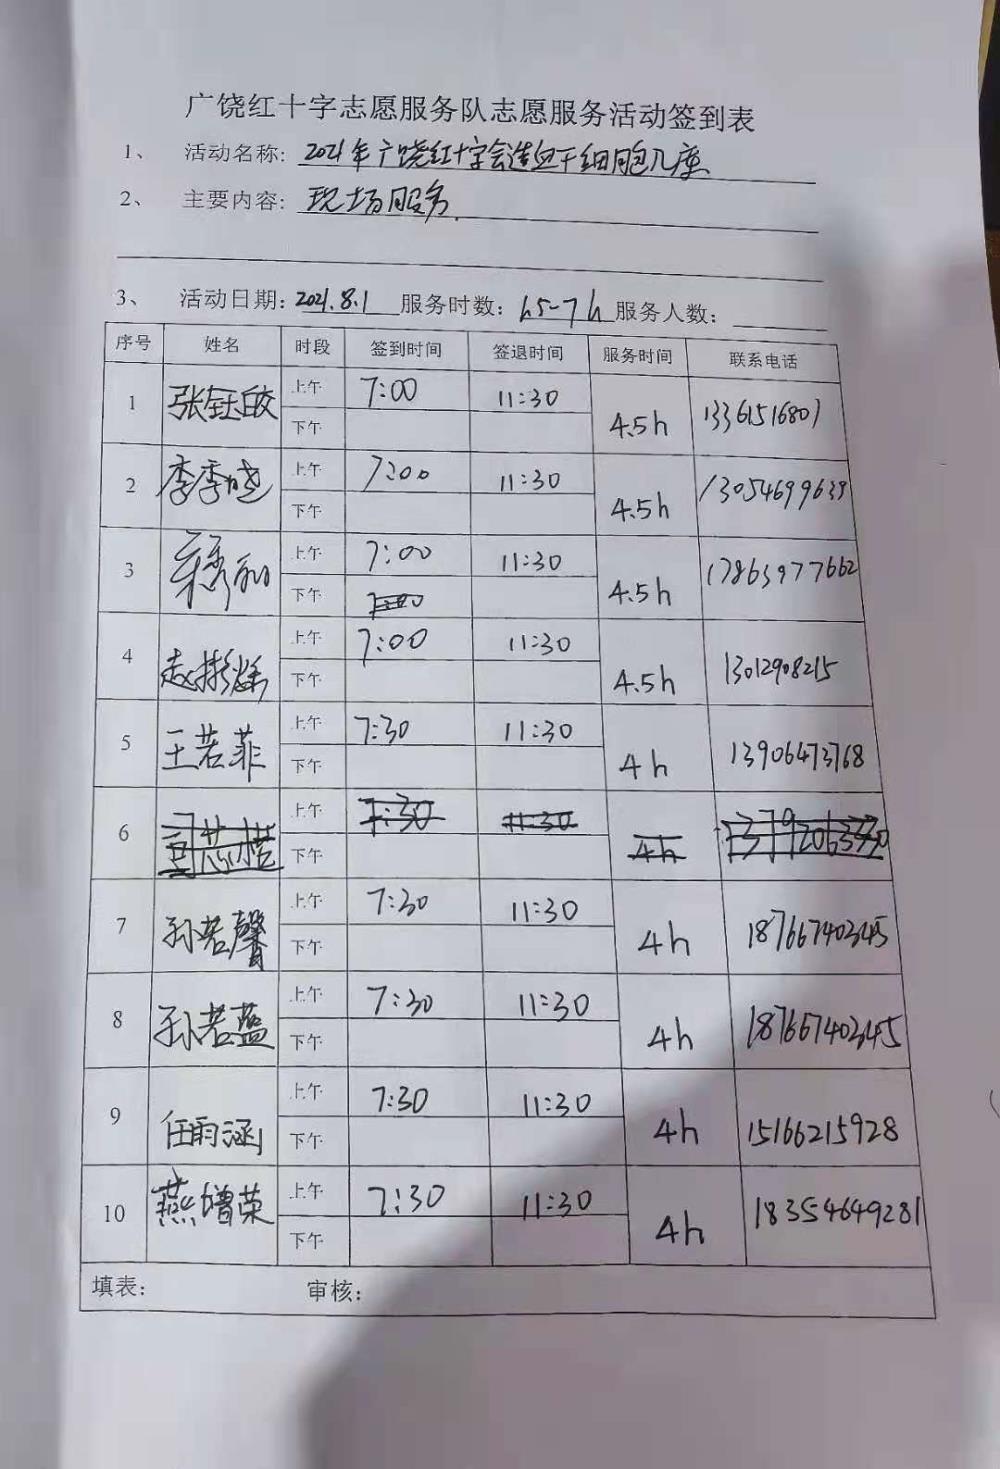 广饶红十字志愿服务队志愿服务活动签到表
1、 活动名称: 2021年广饶红十字会造血干细胞入库
2、 主要内容: 现场服务
3、 活动日期: 2021.8.1 服务时数: 服务人数:
序号 姓名 时段 签到时间 签退时间 服务时间 联系电话
1 张钰皎 上午 7:00 11:30 4.5h 13361516807
下午
2 李季晓 上午 7:00 11:30 4.5h 13054699639
下午
3 上午 7:00 11:30 4.5h 17863977662
下午 7:00
4 赵 上午 7:00 11:30 4.5h 13012908215
下午
5 王若菲 上午 7:30 11:30 4h 13906473768
下午
6 上午 7:30 11:30 4h
下午
7 孙若馨 上午 7:30 11:30 4h 18766740345
下午
8 孙若蕴 上午 7:30 11:30 4h 18766740345
下午
9 任雨涵 上午 7:30 11:30 4h 15166215928
下午
10 燕增荣 上午 7:30 11:30 4h 18354649281
下午
填表: 审核: